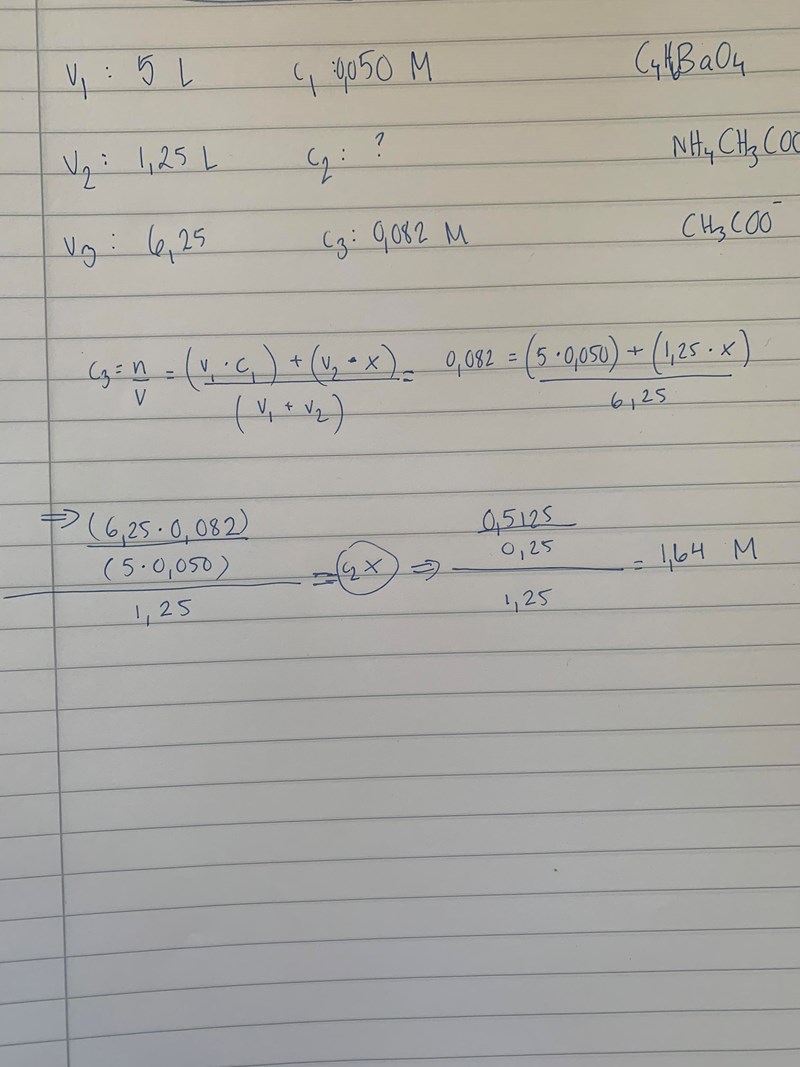 V₁ : 5 L C₁ : 0,050 M C₄H₆BaO₄
V₂ : 1,25 L C₂ : ? NH₄CH₃COO
V₃ : 6,25 C₃ : 0,082 M CH₃COO⁻
C₃ = n/V = (V₁ · C₁) + (V₂ · X) / (V₁ + V₂) = 0,082 = (5 · 0,050) + (1,25 · X) / 6,25
⇒ (6,25 · 0,082) / (5 · 0,050) / 1,25 = C₂ X ⇒ 0,5125 / 0,25 / 1,25 = 1,64 M